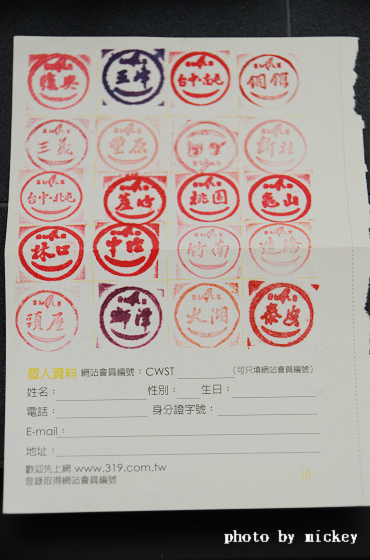 復興 五峰 台中·南屯 銅鑼
三義 豐原 新社
台中·北屯 蘆竹 桃園 龜山
林口 中壢 竹南 造橋
頭屋 獅潭 大湖 泰安
個人資料 網站會員編號：CWST （可只填網站會員編號）
姓名： 性別： 生日：
電話： 身分證字號：
E-mail：
地址：
歡迎先上網 www.319.com.tw
登錄取得網站會員編號
10
photo by mickey